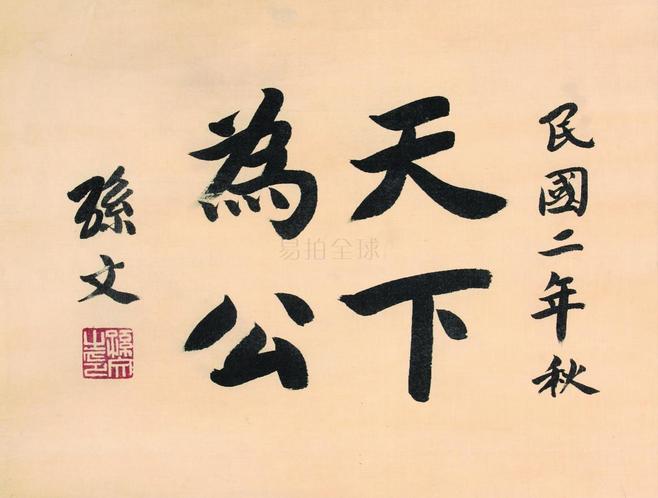 民國二年秋
天下
為公
孫文
孫文之印
易拍全球